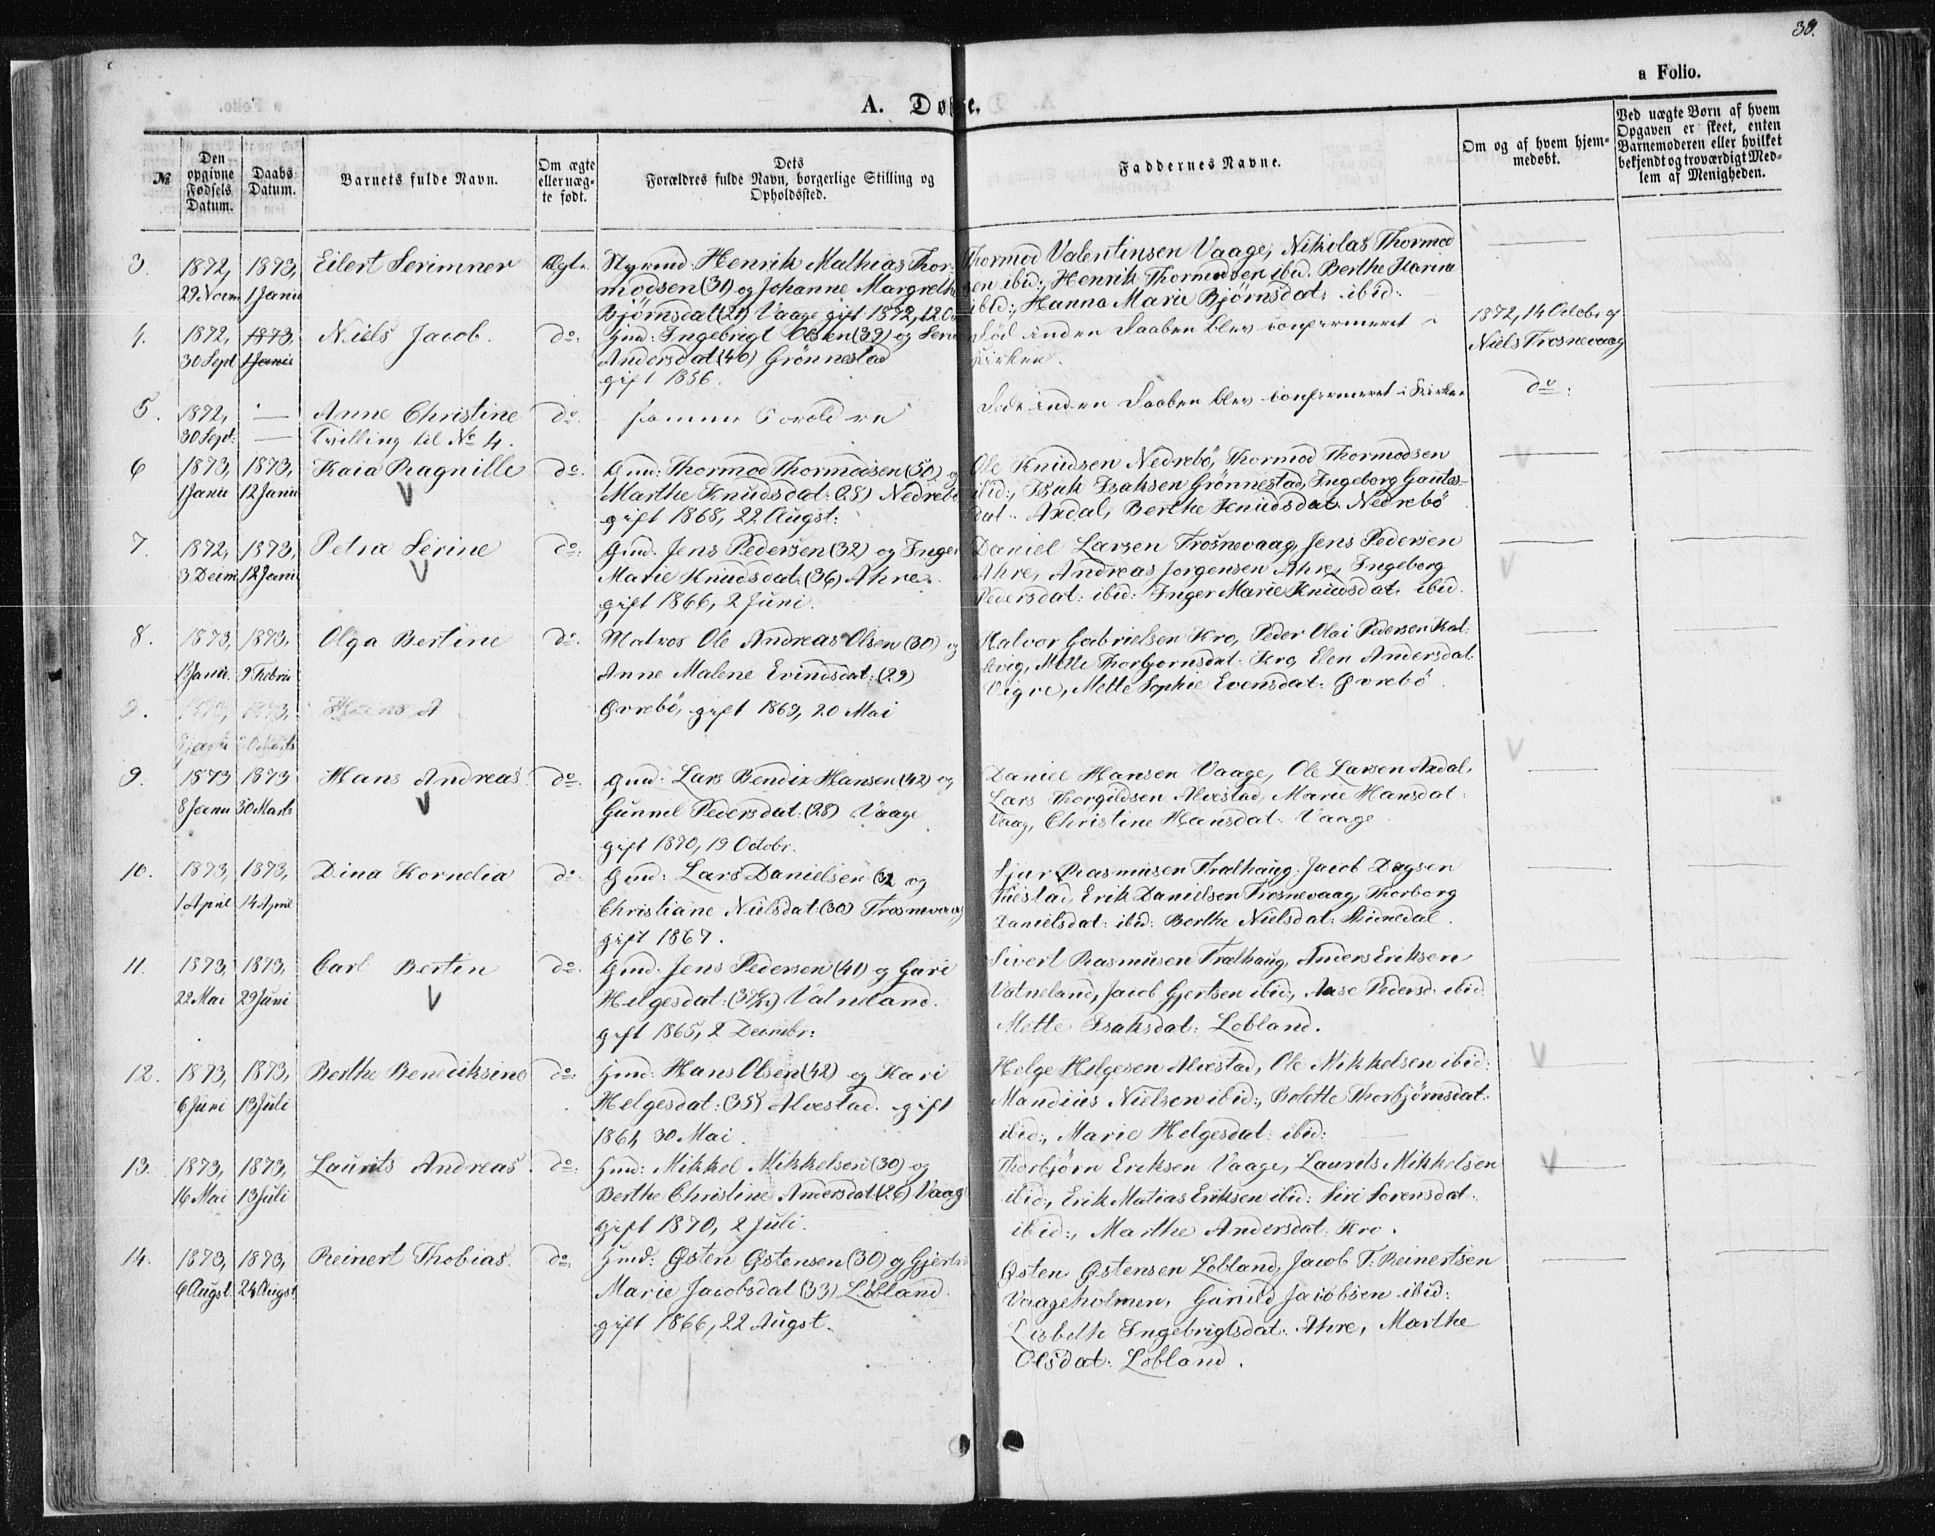 38.
a Folio.
A. Døbte.
№
Den opgivne Fødsels Datum.
Daabs Datum.
Barnets fulde Navn.
Om ægte eller uægte født.
Dets Forældres fulde Navn, borgerlige Stilling og Opholdssted.
Faddernes Navne.
Om og af hvem hjemmedøbt.
Ved uægte Børn af hvem Opgaven er skeet, enten Barnemoderen eller hvilket bekjendt og troværdigt Medlem af Menigheden.
3. 1872, 1873, Eilert Serimner Ægte Styrmd: Henrik Mathias Thor- Thormod Valentinsen Vaage, Nikolas Thormod
29 Novm 1 Janu modsen (31) og Johanne Margrethe sen ibid:, Henrik Thormodsen ibid. Berthe Karine
Bjørnsdat (21) Vaage gift 1872, 12 Oc ibid:, Hanna Marie Bjørnsdat: ibid:
4. 1872, 1873, Niels Jacob. do: Gmd: Ingebrigt Olsen (39) og Serine Død inden Daaben blev confirmeret i 1872, 14 Octob. af
30 Sept 1 Janu Andersdat (40) Grønnestad Kirken. Niels Trosnevaag
gift 1856.
5. 1872, — Anne Christine do. samme Forældre Døde inden Daaben blev confirmeret i Kirken do:
30 Sept: — Tvilling til No 4.
6 1873, 1873, Kaia Ragnille do: Gmd: Thormod Thormodsen (50) og Ole Knudsen Nedrebø, Thormod Thormodsen
1 Janu 12 Janu Marthe Knudsdat: (28) Nedrebø ibid:, Isak Isaksen Grønnestad, Ingeborg Gautes-
gift 1868, 22 Augst: dat. Axdal, Berthe Knudsdat: Nedrebø
7. 1872, 1873, Petra Serine do: Gmd. Jens Pedersen (32) og Inger Daniel Larsen Trosnevaag, Jens Pedersen
3 Decm 12 Janu Marie Knudsdat: (36) Ahre. Ahre, Andreas Jorgensen Ahre, Ingeborg
gift 1866, 2 Juni. Pedersdat: ibid: Inger Marie Knudsdat: ibid.
8. 1873, 1873, Olga Bertine do: Matros Ole Andreas Olsen (30) og Halvor Gabrielsen Kro, Peder Olai Pedersen Kal-
1 Janu. 9 Febru Anne Malene Evindsdat: (29) levig, Mette Thorbjornsdat: Kro, Elen Andersdat.
Øvrebø, gift 1869, 20 Mai Vigre, Mette Sophie Evensdat: Øvrebø
9. 1873, 1873, Hans A
8 Janu 30 Marts
9. 1873 1873 Hans Andreas do: Gmd: Lars Bendix Hansen (42) og Daniel Hansen Vaage, Ole Larsen Axdal,
8 Janu 30 Marts Gunnel Pedersdat: (28) Vaage Lars Thorgildsen Alvestad, Marie Hansdat:
gift 1870, 19 Octobr. Vaag, Christine Hansdat: Vaage
10. 1873, 1873, Dina Kornelia do: Gmd: Lars Danielsen (32 og Sjur Rasmusen Trælhaug, Jacob Dagsen
1 April 14 April Christiane Nielsdat: (30) Trosnevaag Erik Danielsen Trosnevaag, Thorborg
gift 1867. Danielsdat: ibid: Berthe Nielsdat:
11. 1873, 1873, Carl Bertin do: Gmd. Jens Pedersen (41) og Guri Sivert Rasmusen Trælhaug, Anders Eriksen
22 Mai 29 Juni Helgesdat: (37½) Vatneland. Vatneland, Jacob Gjertsen ibid:, Aase Pedersd: ibid
gift 1865, 2 Decmbr: Mette Isaksdat: Løbland.
12. 1873, 1873, Berthe Bendiksine do: Gmd: Hans Olsen (42) og Kari Helge Helgesen Alvestad, Ole Mikkelsen ibid:
6 Juni 13 Juli Helgesdat: (35) Alvestad. gift Mandius Nielsen ibid:, Bolette Thorbjørnsdat.
1864 30 Mai. ibid:, Marie Helgesdat: ibid:
13. 1873, 1873, Laurits Andreas. do: Gmd: Mikkel Mikkelsen (30) og Thorbjørn Eriksen Vaage, Laurits Mikkelsen
16 Mai 13 Juli Berthe Christine Andersdat (26) Vaag ibid:, Erik Matias Eriksen ibid: Siri Sorensdat.
gift 1870, 2 Juli. ibid:, Marthe Andersdat: Kro.
14. 1873, 1873, Reinert Thobias. do: Gmd: Østen Østensen (30) og Gjertru Østen Østensen Løbland, Jacob T. Reinertsen
6 Augst 24 Augst Marie Jacobsdat (33) Løbland. Vaageholmen, Gunild Jacobsen ibid:
gift 1866, 22 Augst. Lisbeth Ingebrigtsdat: Ahre, Marthe
Olsdat: Løbland.